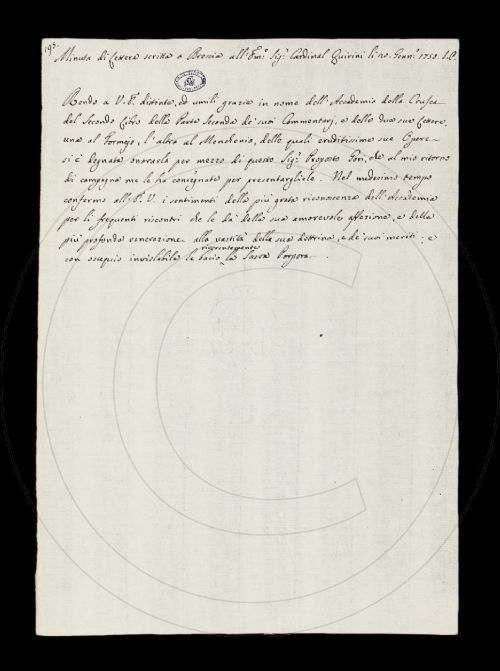 195.
Minuta di lettera scritta a Brescia all' Em.º Sig.r Cardinal Quirini li 20. Genn.º 1750. I.C.
Rendo a V. E. distinte, ed umili grazie in nome dell' Accademia della Crusca
del Secondo Libro della Parte Seconda de' suoi Commentarj, e delle due sue Lettere,
una al Formejo, l' altra al Menchenio, delle quali eruditissime sue Opere
si è degnata onorarla per mezzo di questo Sig.r Proposto Gori, che al mio ritorno
di campagna me le ha consegnate per presentargliele. Nel medesimo tempo
confermo all' E. V. i sentimenti della più grata riconoscenza dell' Accademia
per li frequenti riscontri che le dà della sua amorevole affezione, e della
più profonda venerazione alla vastità della sua dottrina, e de' suoi meriti: e
riverentemente
con ossequio inviolabile le bacio la Sacra Porpora.